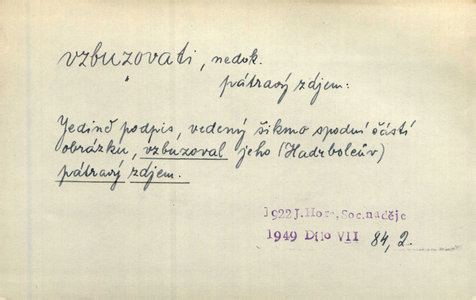 vzbuzovati, nedok.
pátravý zájem:
Jedině podpis, vedený šikmo spodní částí
obrázku, vzbuzoval jeho (Hadrbolcův)
pátravý zájem.
1922 J. Hora, Soc. naděje
1949 Dílo VII 84, 2.